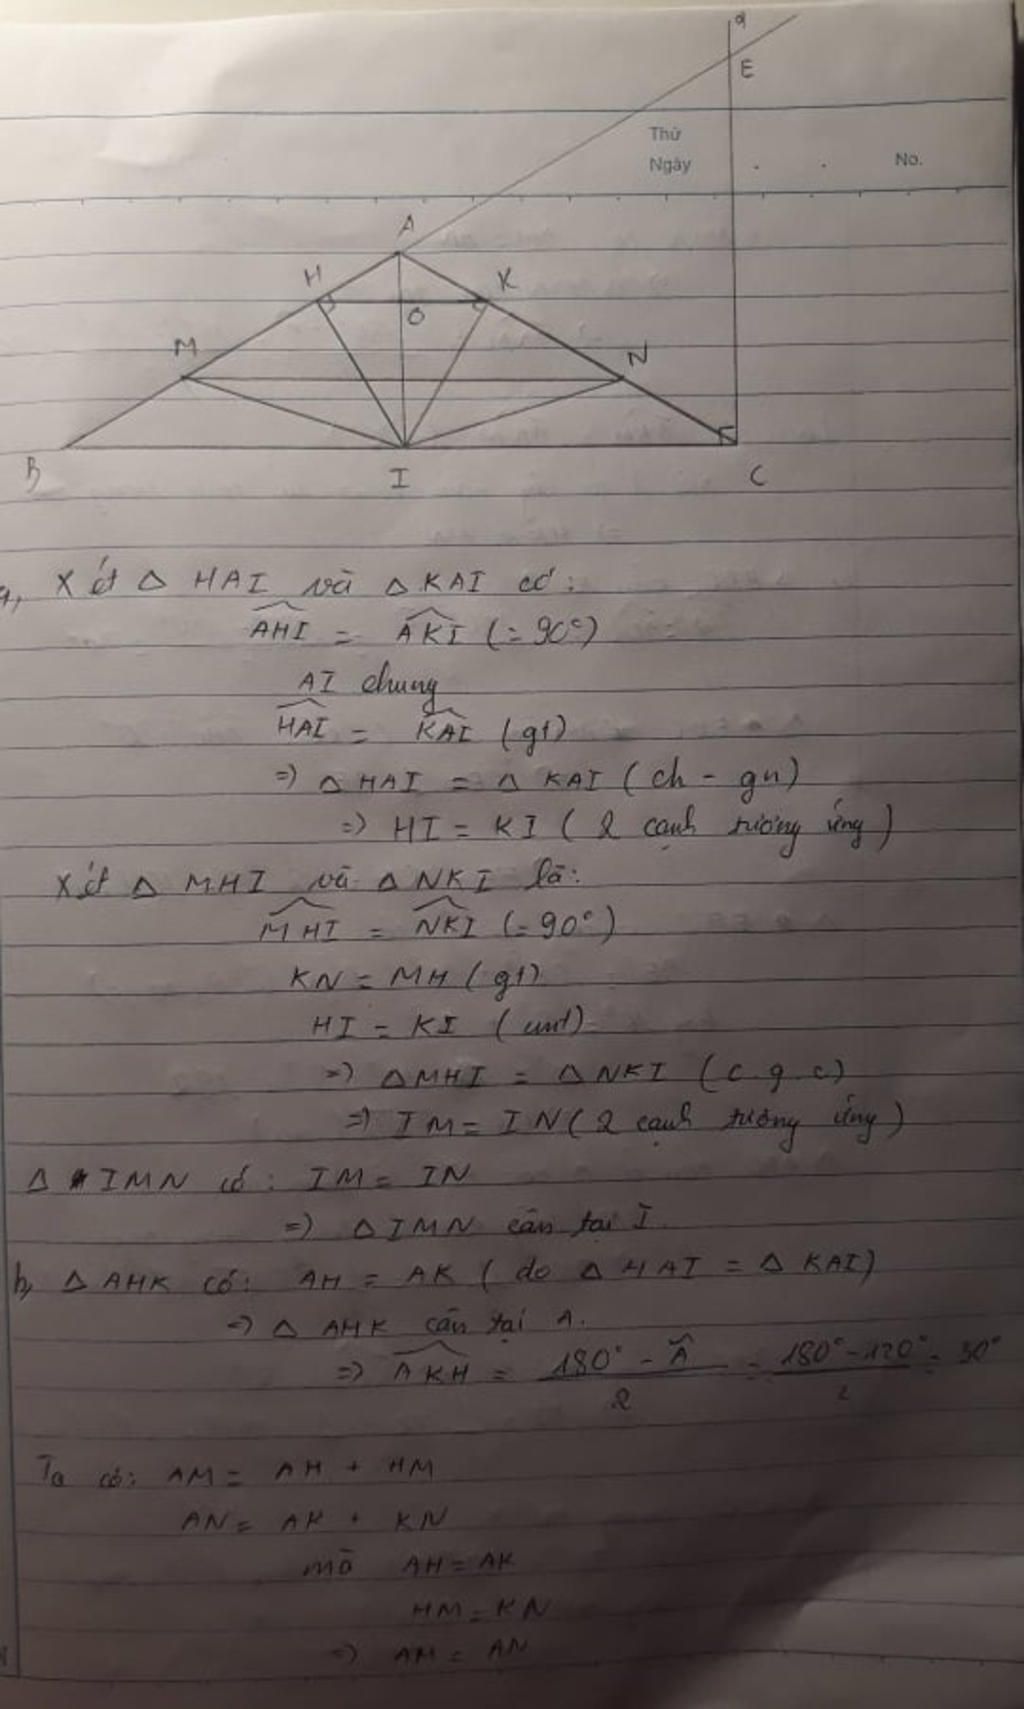 q
E
Thứ
Ngày . . No.
A
H K
O
M N
B I C
a, Xét △ HAI và △ KAI có:
AHI = AKI (=90°)
AI chung
HAI = KAI (gt)
=> △ HAI = △ KAI (ch - gn)
=> HI = KI ( 2 cạnh tương ứng )
Xét △ MHI và △ NKI là:
MHI = NKI (=90°)
KN = MH (gt)
HI = KI (cmt)
=> △MHI = △NKI (c.g.c)
=> IM = IN ( 2 cạnh tương ứng )
△ IMN có: IM = IN
=> △IMN cân tại I.
b, △ AHK có: AH = AK ( do △ HAI = △ KAI)
=> △ AHK cân tại A.
=> AKH = 180° - A = 180° - 120° = 30°
2 2
Ta có: AM = AH + HM
AN = AK + KN
mà AH = AK
HM = KN
=> AM = AN